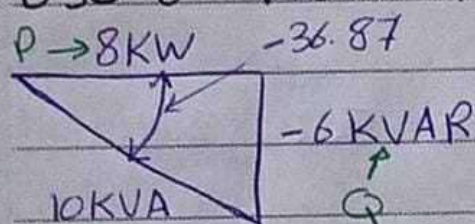 P → 8KW -36.87
-6 KVAR
10KVA Q